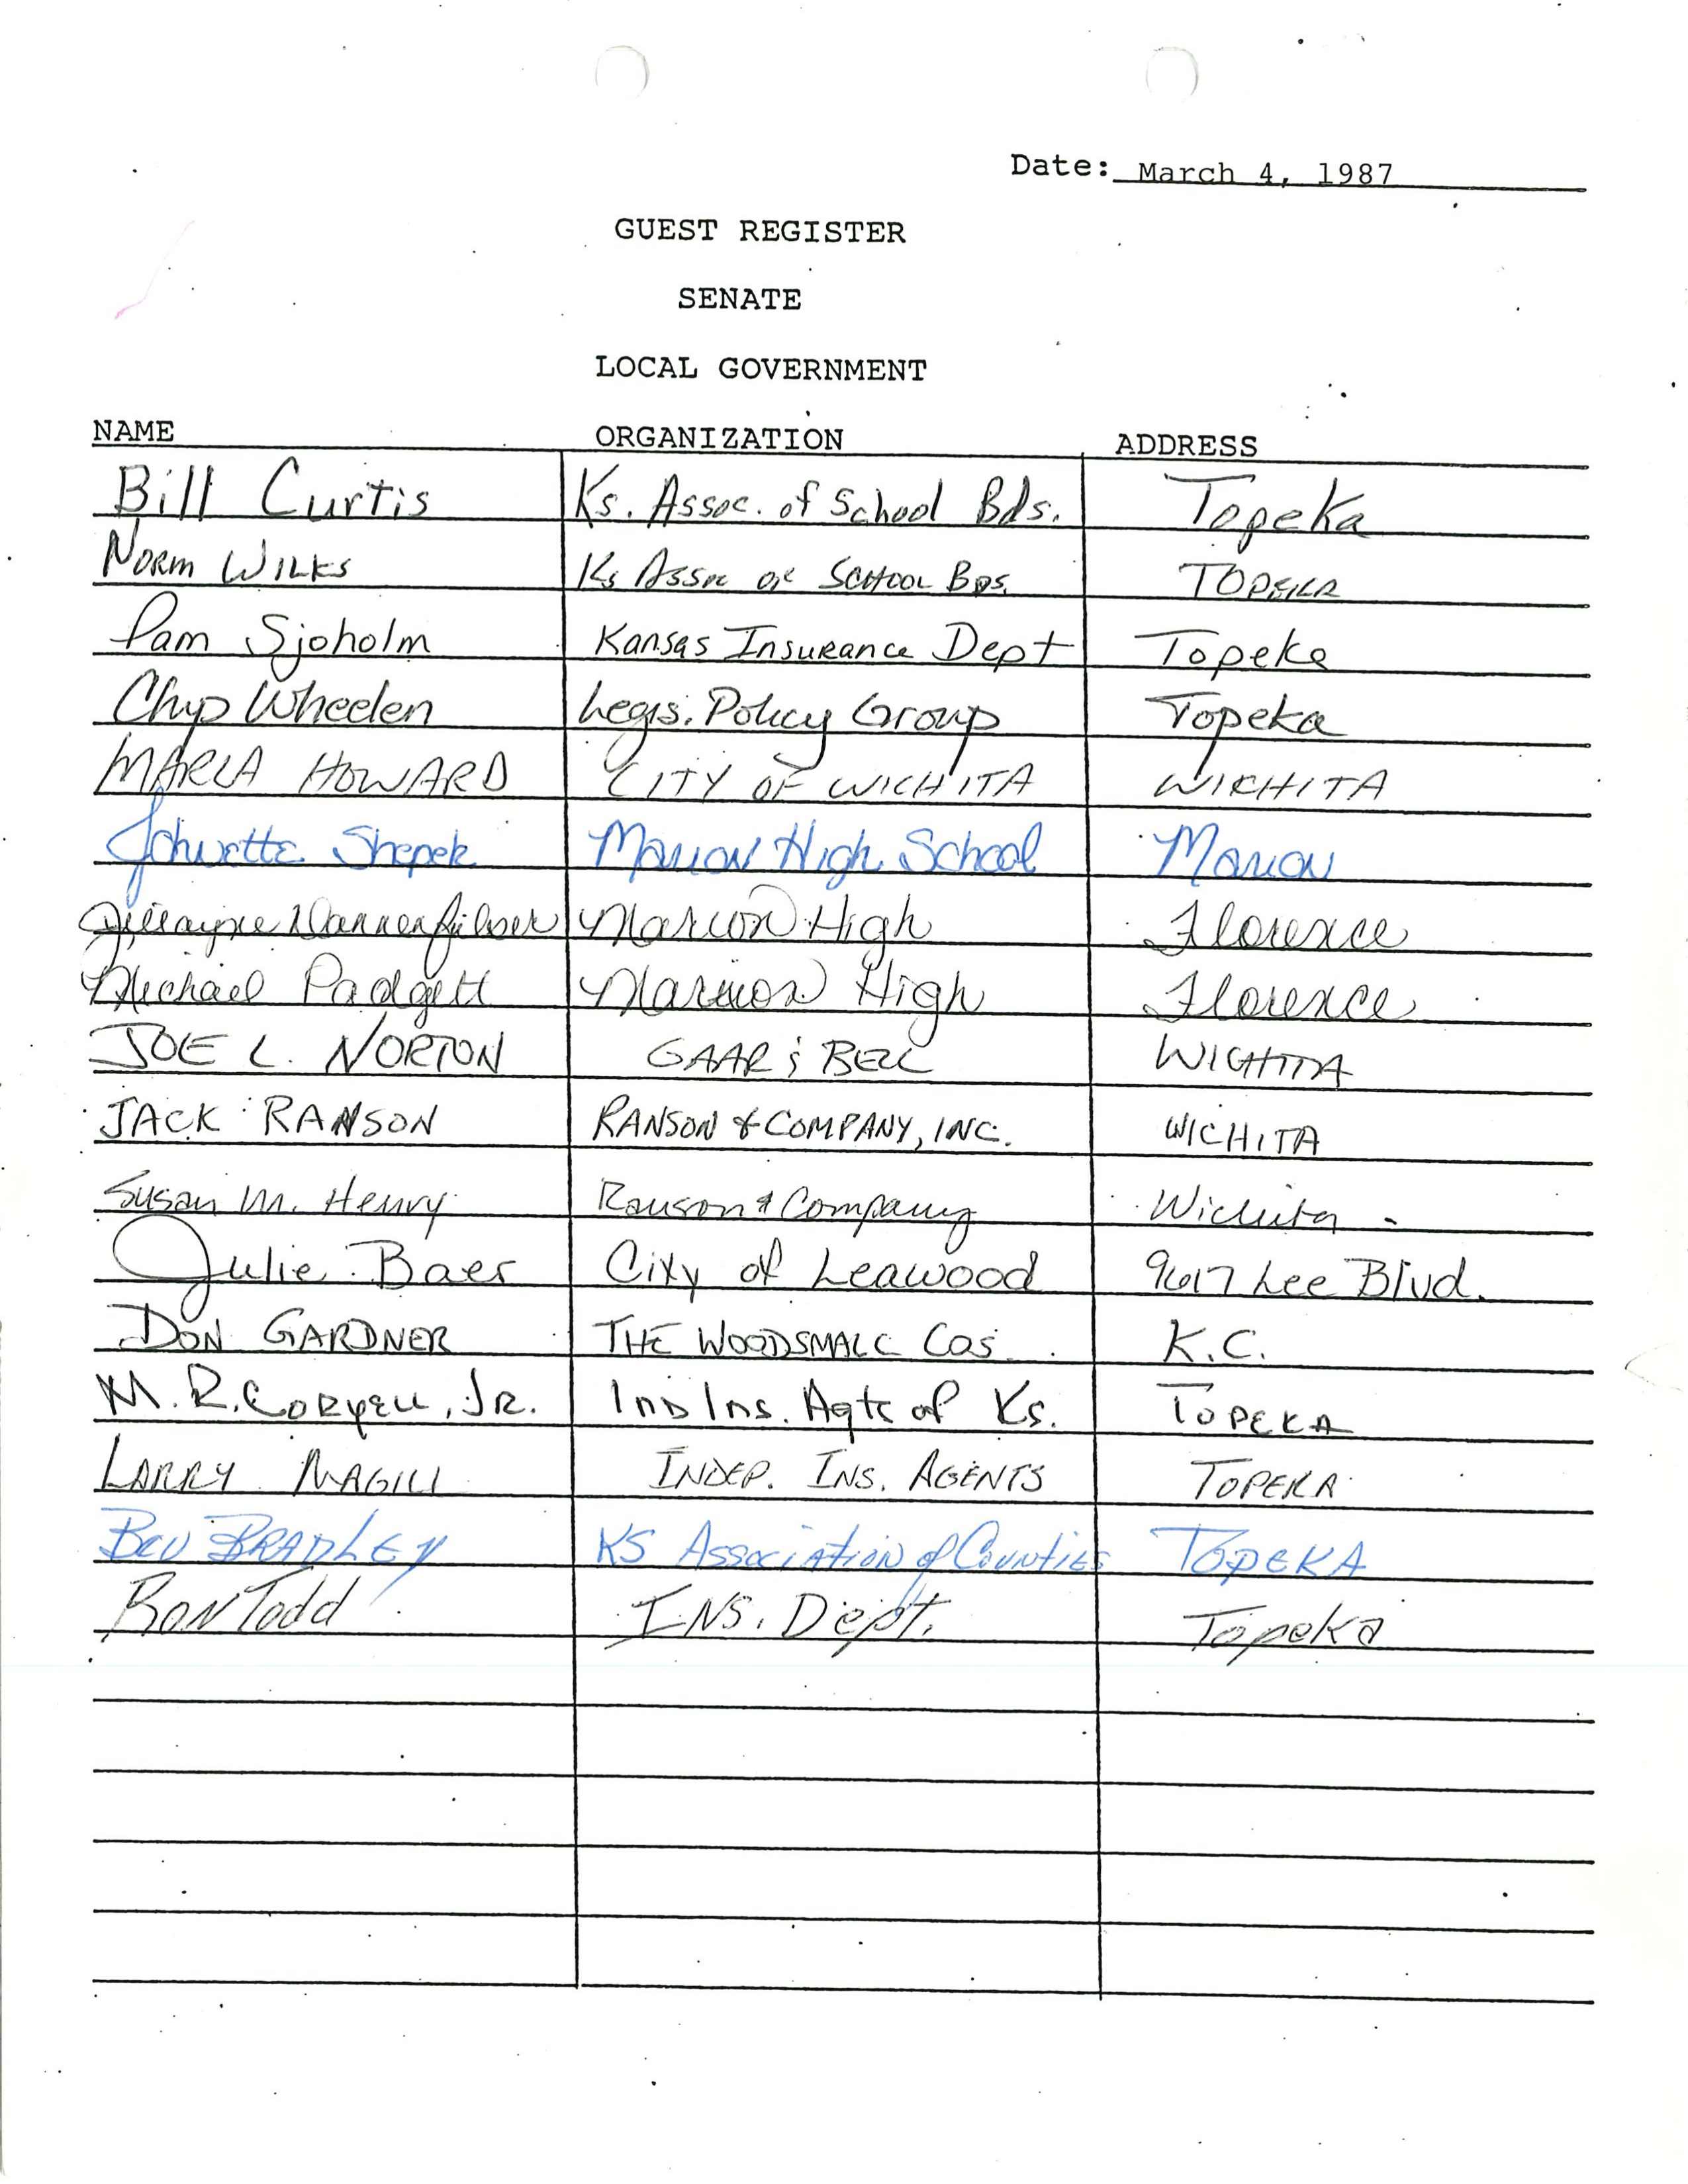 Date: March 4, 1987
GUEST REGISTER
SENATE
LOCAL GOVERNMENT
NAME ORGANIZATION ADDRESS
Bill Curtis Ks. Assoc. of School Bds. Topeka
Norm Wilks Ks Assoc of School Bds. Topeka
Pam Sjoholm Kansas Insurance Dept Topeka
Chip Wheelen Legis. Policy Group Topeka
MARLA HOWARD CITY OF WICHITA WICHITA
Shepek Marion High School Marion
Marion High Florence
Michael Padgett Marion High Florence
JOE L. NORTON GAAR & BELL WICHITA
JACK RANSON RANSON & COMPANY, INC. WICHITA
Susan M. Henry Ranson & Company Wichita
Julie Baer City of Leawood 9617 Lee Blvd.
DON GARDNER THE WOODSMALL COS. K.C.
M. R. CORYELL, JR. IND INS. Agts of Ks. TOPEKA
LARRY MAGILL INDEP. INS. AGENTS TOPEKA
BEV BRADLEY KS Association of Counties TOPEKA
RON Todd INS. Dept. Topeka